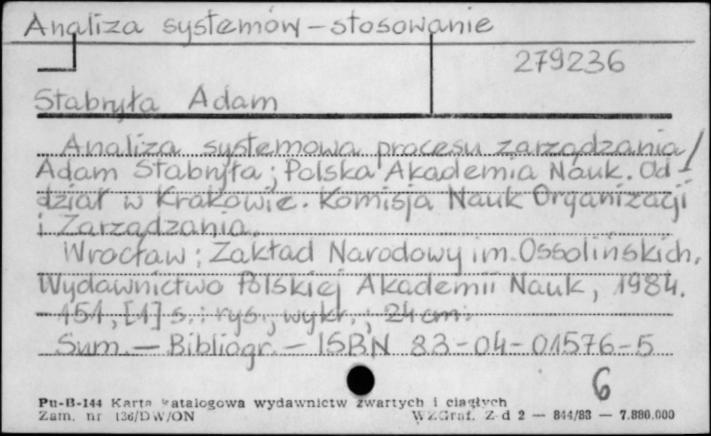 Analiza systemów – stosowanie
279236
Stabryła Adam
Analiza systemowa procesu zarządzania /
Adam Stabryła ; Polska Akademia Nauk. Od-
dział w Krakowie. Komisja Nauk Organizacji
i Zarządzania.
Wrocław : Zakład Narodowy im. Ossolińskich,
Wydawnictwo Polskiej Akademii Nauk, 1984.
– 151, [1] s. : rys., wykr. ; 24 cm.
Sum. – Bibliogr. – ISBN 83-04-01576-5
6
Pu-B-144 Karta katalogowa wydawnictw zwartych i ciągłych
Zam. nr 136/DW/ON WZGraf. Z-d 2 — 844/83 — 7.880.000